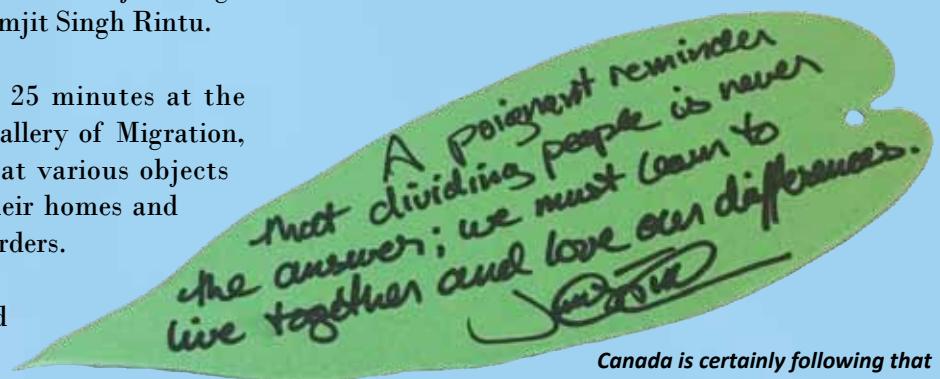 mjit Singh Rintu.
25 minutes at the
allery of Migration,
at various objects
eir homes and
rders.
A poignent reminder
that dividing people is never
the answer; we must learn to
live together and love our differences.
Canada is certainly following that